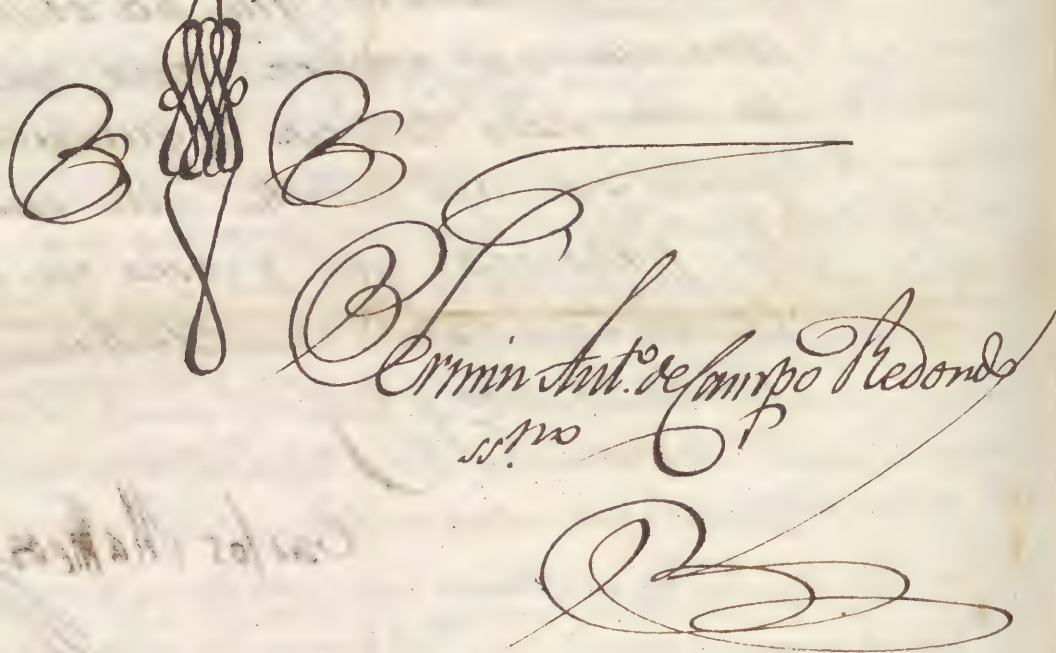 Fermin Ant.º de Campo Redondo
ss.no